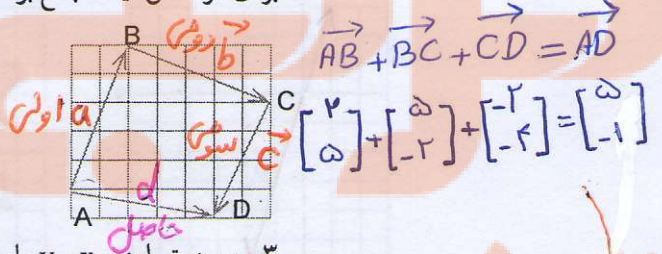 B دومی b⃗
AB⃗ + BC⃗ + CD⃗ = AD⃗
اولی a
سومی c⃗ C
[۲ ۵] + [۵ -۲] + [-۲ -۴] = [۵ -۱]
A d D
حاصل